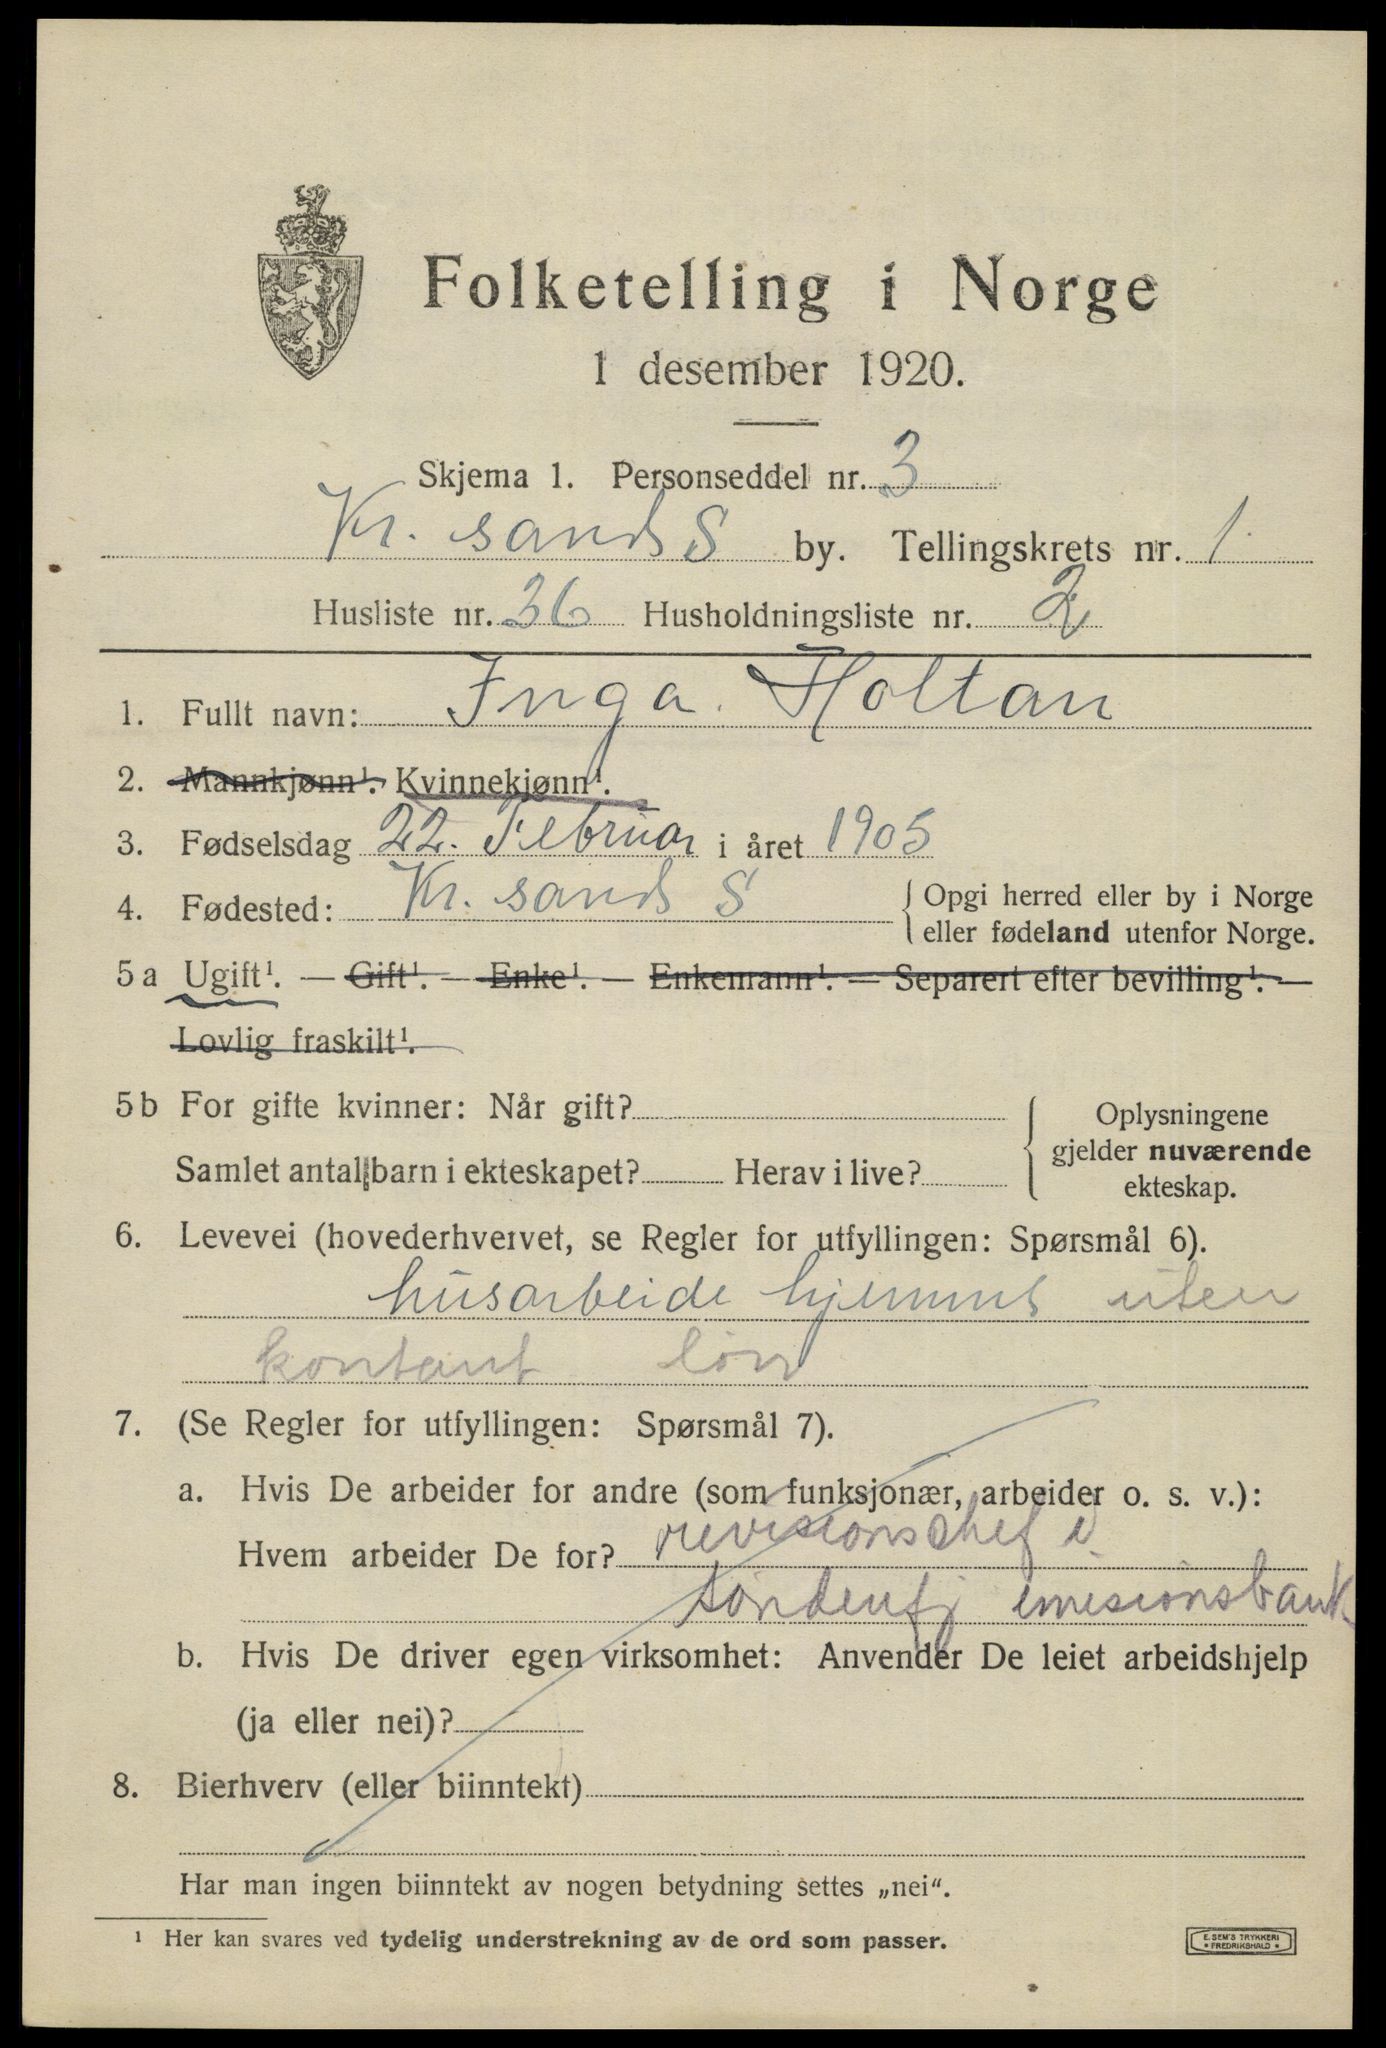 Folketelling i Norge
1 desember 1920.
Skjema 1. Personseddel nr. 3
Kr. sand S by. Tellingskrets nr. 1.
Husliste nr. 36 Husholdningsliste nr. 2
1. Fullt navn: Inga. Holtan
2. Mannkjønn¹. Kvinnekjønn¹.
3. Fødselsdag 22. Februar i året 1905
4. Fødested: Kr. sand S { Opgi herred eller by i Norge
eller fødeland utenfor Norge.
5 a Ugift¹. — Gift¹. — Enke¹. — Enkemann¹. — Separert efter bevilling¹. —
Lovlig fraskilt¹.
5 b For gifte kvinner: Når gift?
Samlet antal barn i ekteskapet? Herav i live?
Oplysningene
gjelder nuværende
ekteskap.
6. Levevei (hovederhvervet, se Regler for utfyllingen: Spørsmål 6).
husarbeide hjemme uten
kontant løn
7. (Se Regler for utfyllingen: Spørsmål 7).
a. Hvis De arbeider for andre (som funksjonær, arbeider o. s. v.):
Hvem arbeider De for? revisionschef i
Søndenfj emisionsbank
b. Hvis De driver egen virksomhet: Anvender De leiet arbeidshjelp
(ja eller nei)?
8. Bierhverv (eller biinntekt)
Har man ingen biinntekt av nogen betydning settes „nei“.
¹ Her kan svares ved tydelig understrekning av de ord som passer.
E. SEM'S TRYKKERI
• FREDRIKSHALD •